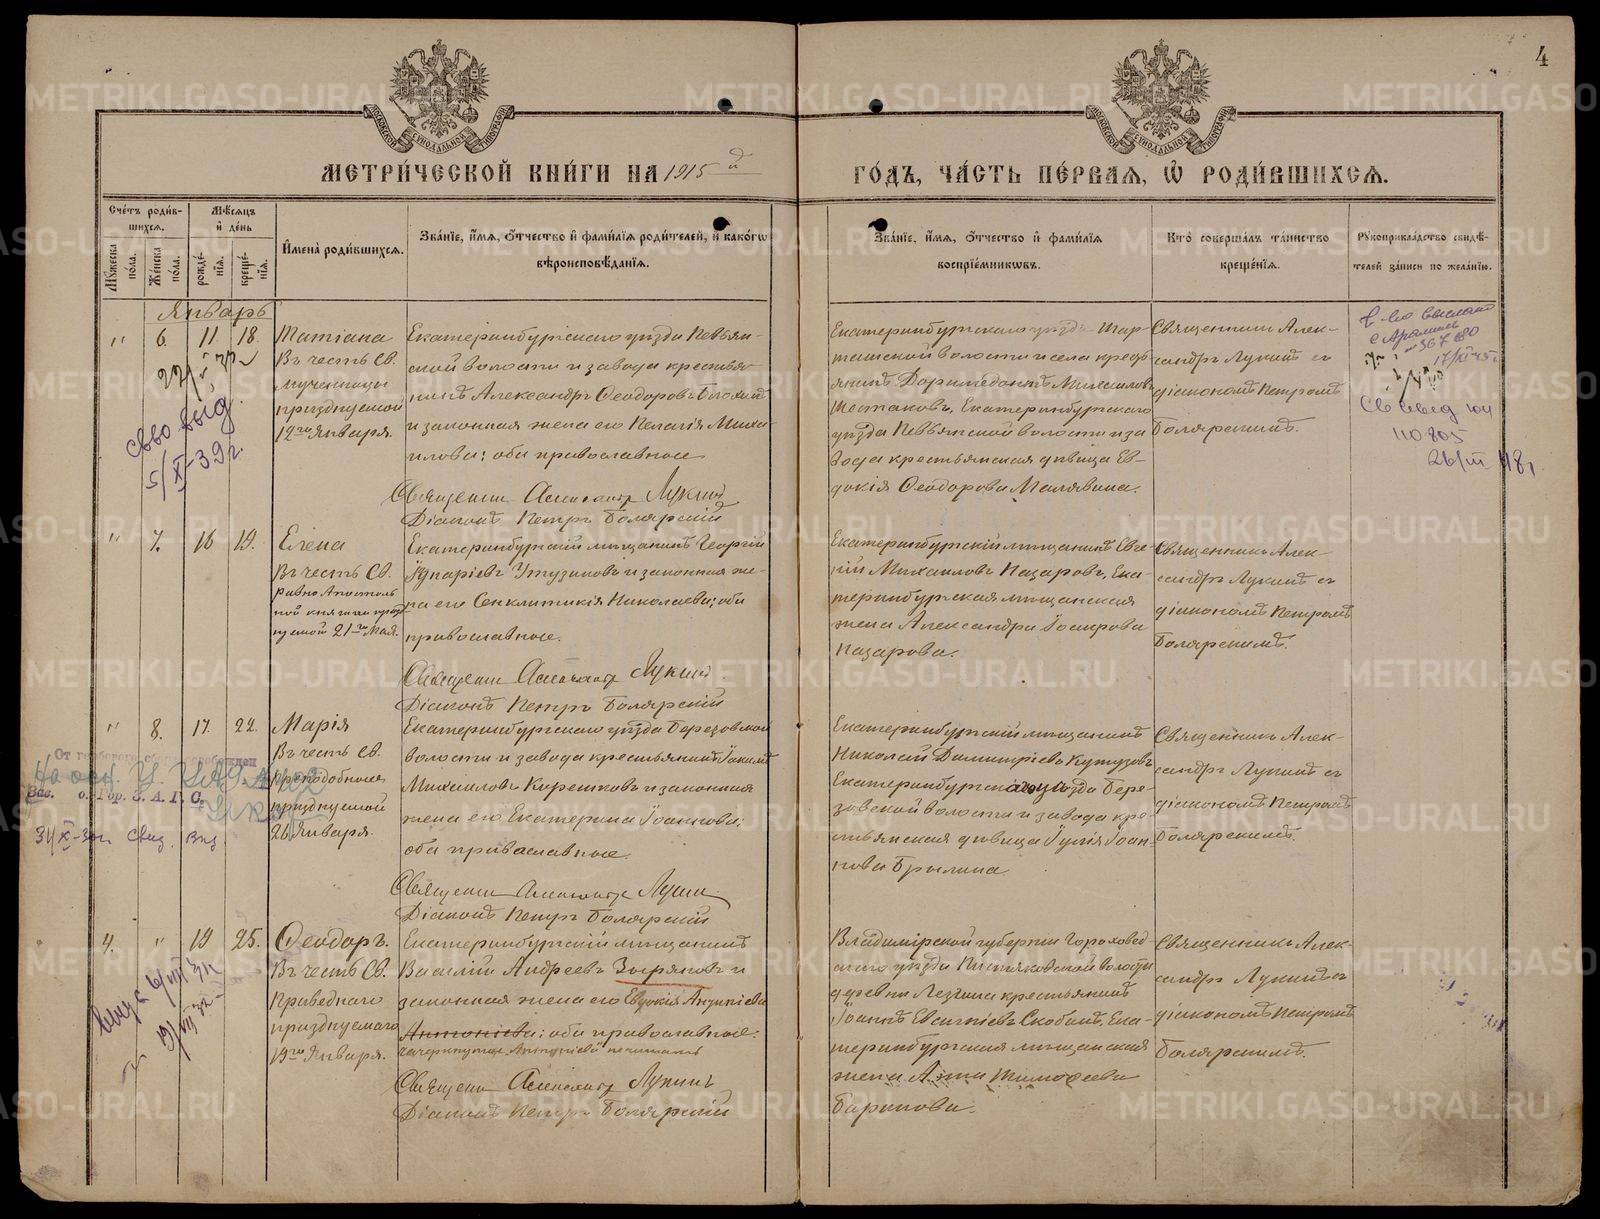 4
МЕТРИ́ЧЕСКОЙ КНИ́ГИ НА 1915й
ГО́ДЪ, ЧА́СТЬ ПЕ́РВАЯ, Ѽ РОДИ́ВШИХСЯ.
Сче́тъ роди́в-
шихся.
Мѣ́сяцъ
и҆ де́нь
Му́жеска
по́ла.
Же́нска
по́ла.
рожде́-
нїя.
креще́-
нїя.
И҆мена̀ роди́вшихся.
Зва́нїе, и҆́мя, ѻ҆́тчество и҆ фами́лїя роди́телей, и҆ како́гѡ
вѣроисповѣ́данїя.
Зва́нїе, и҆́мя, ѻ҆́тчество и҆ фами́лїя
воспрїе́мникѡвъ.
Кто̀ соверша́лъ та́инство
креще́нїя.
Рꙋкоприкла́дство свидѣ́-
телей за́писи по жела́нїю.
Январь
" 6. 11 18.
Татіана
Въ честь Св.
мученицы
празднуемой
12го Января.
Екатеринбургскаго уѣзда Невьян-
ской волости и завода крестья-
нинъ Александръ Ѳеодоровъ
и законная жена его Пелагія Миха-
илова; оба православные
Священникъ Александръ Лукинъ
Діаконъ Петръ Болярскій
Екатеринбургскаго уѣзда
волости и села кресть-
янинъ Доримедонтъ Михаиловъ
Шестаковъ, Екатеринбургскаго
уѣзда Невьянской волости и за-
вода крестьянская дѣвица Ев-
докія Ѳеодорова Малявина.
Священникъ Алек-
сандръ Лукинъ съ
діакономъ Петромъ
Болярскимъ.
св-во выд.
5/XI-39г.
17/XI-45г.
110805
26/III 48г
" 7. 16 19.
Елена
Въ честь Св.
равно Апостоль
ной княгини празд
нуемой 21го Мая.
Екатеринбургскій мѣщанинъ Георгій
и законная же-
на его Сенклитикія Николаева; оба
православные.
Священникъ Александръ Лукинъ
Діаконъ Петръ Болярскій
Екатеринбургскій мѣщанинъ Евге-
ній Михаиловъ Назаровъ, Ека-
теринбургская мѣщанская
жена Александра Іоакимова
Назарова.
Священникъ Алек-
сандръ Лукинъ съ
діакономъ Петромъ
Болярскимъ.
" 8. 17. 22.
Марія
Въ честь Св.
Преподобныя
празднуемой
26 Января.
Екатеринбургскаго уѣзда Березовской
волости и завода крестьянинъ Іакимъ
Михаиловъ и законная
жена его Екатерина Іоаннова;
оба православные.
Священникъ Александръ Лукинъ
Діаконъ Петръ Болярскій
Екатеринбургскій мѣщанинъ
Николай Димитріевъ Кутузовъ
Екатеринбургскаго уѣзда Бере-
зовской волости и завода кре-
стьянская дѣвица Іулія Іоан-
нова Брылина
Священникъ Алек-
сандръ Лукинъ съ
діакономъ Петромъ
Болярскимъ.
4. " 19 25.
Ѳеодоръ.
Въ честь Св.
Праведнаго
празднуемаго
19го Января.
Екатеринбургскій мѣщанинъ
Василій Андреевъ Зыряновъ и
законная жена его Евдокія
Антонiева; оба православные.
Священникъ Александръ Лукинъ
Діаконъ Петръ Болярскій
Владимірской губерніи Гороховец-
каго уѣзда Кистяковской волости
деревни крестьянинъ
Іоаннъ Евсигніевъ Ека-
теринбургская мѣщанская
жена Анна Тимоѳеева
Баринова.
Священникъ Алек-
сандръ Лукинъ съ
діакономъ Петромъ
Болярскимъ.